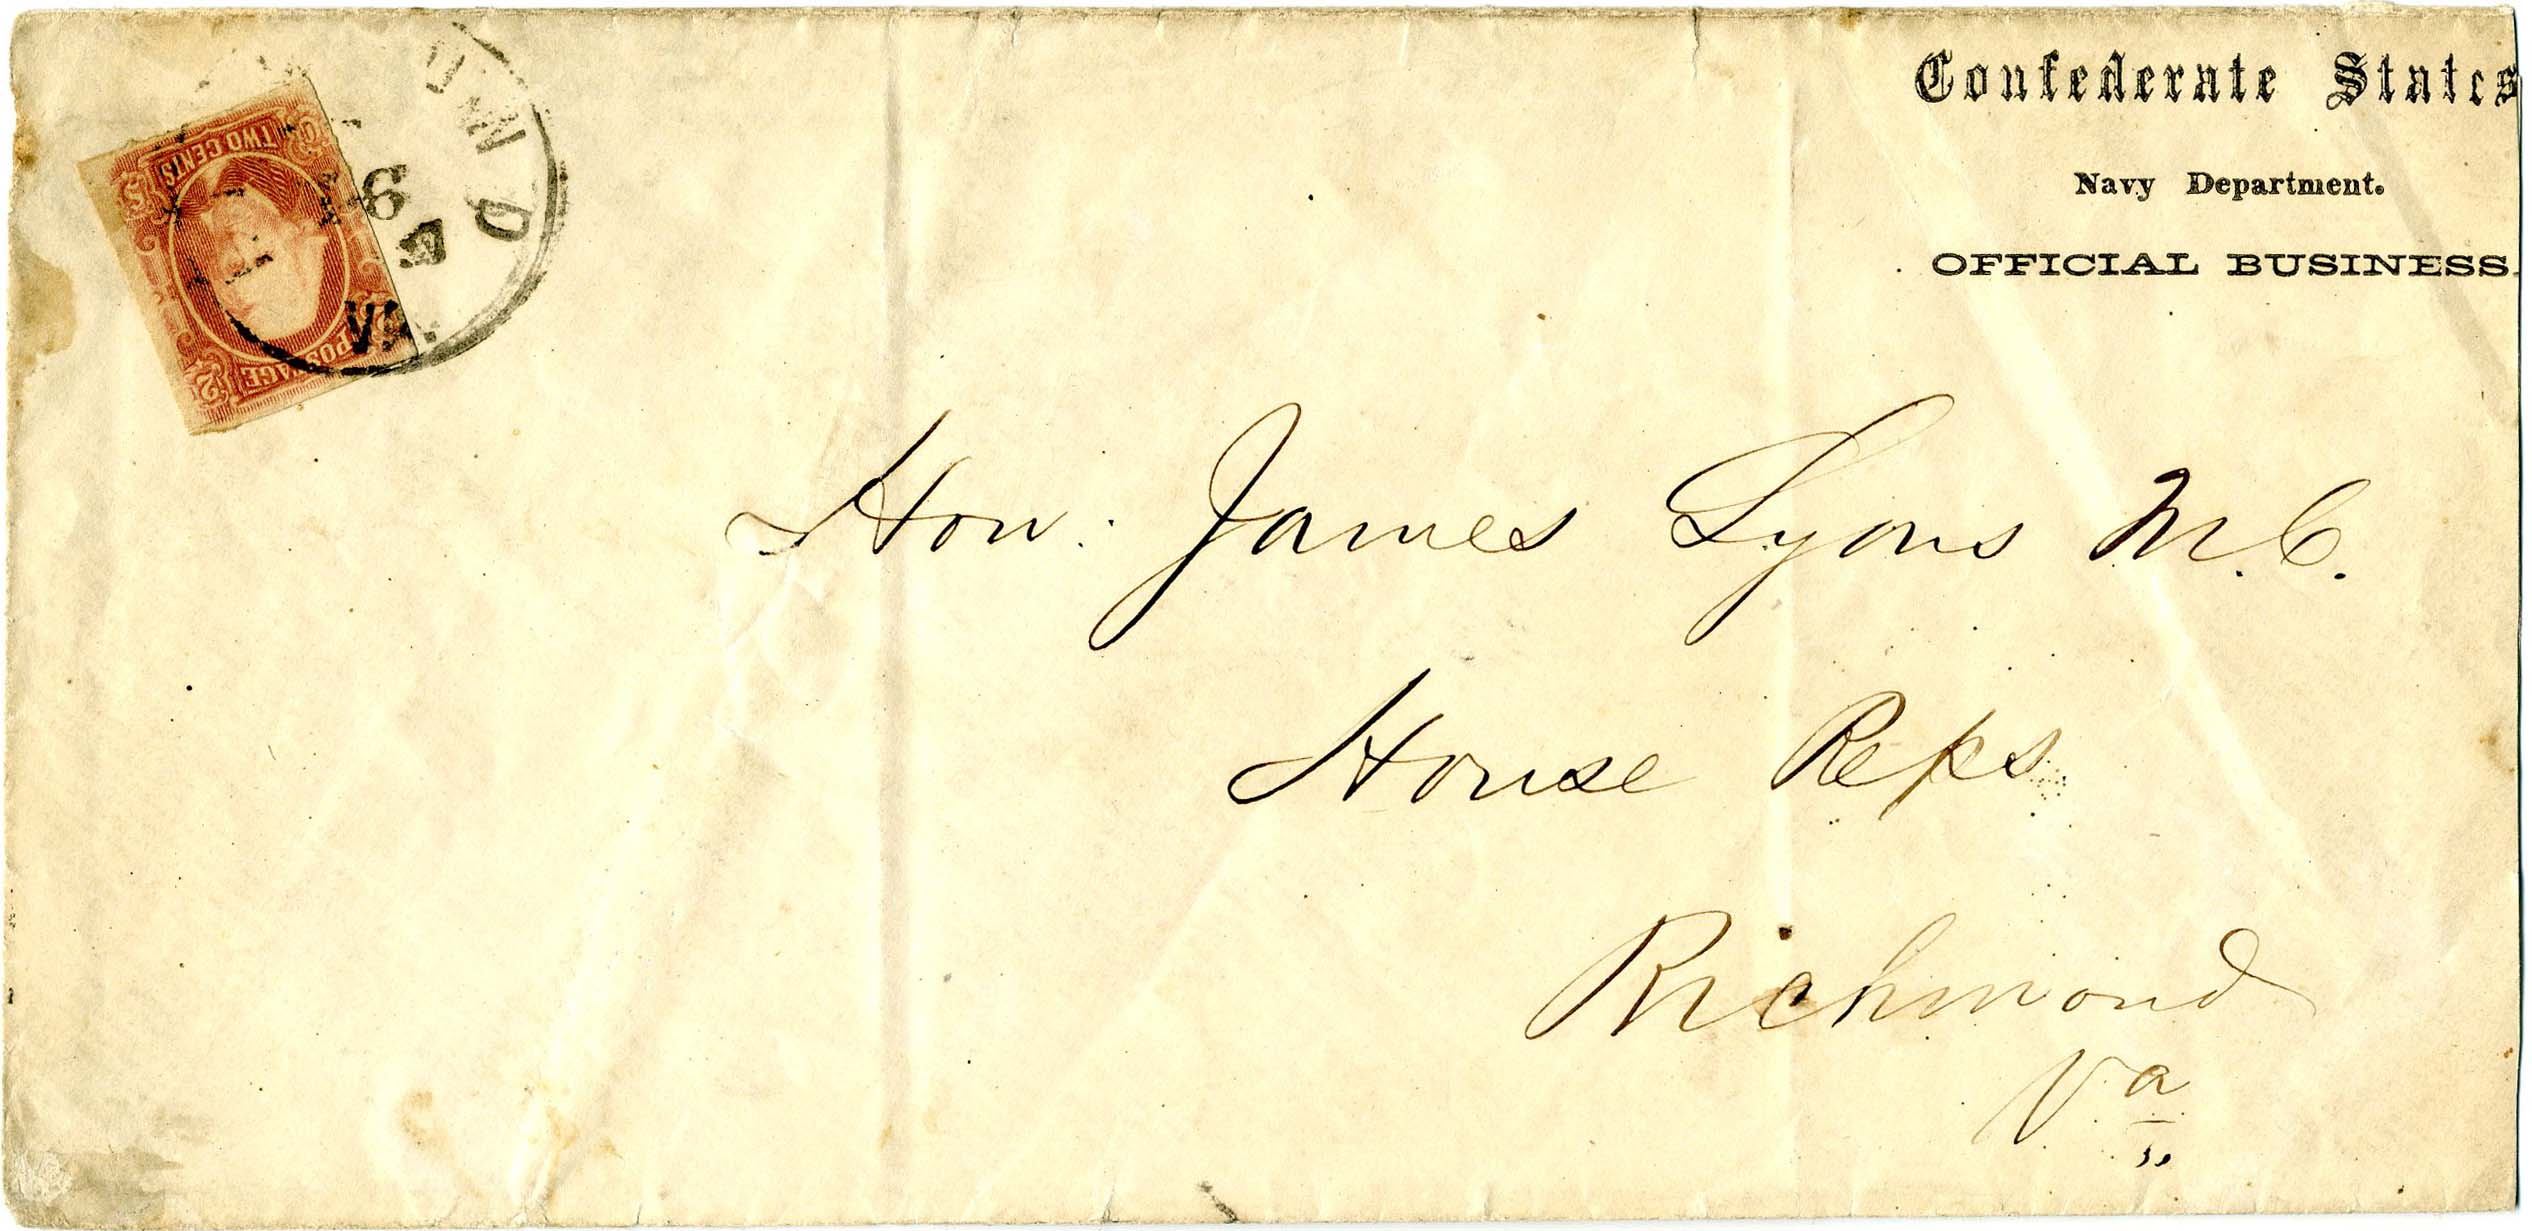 Confederate States
Navy Department.
OFFICIAL BUSINESS.
TWO CENTS
POSTAGE
2
6
VA.
Hon. James Lyons M.C.
House Reps
Richmond
Va